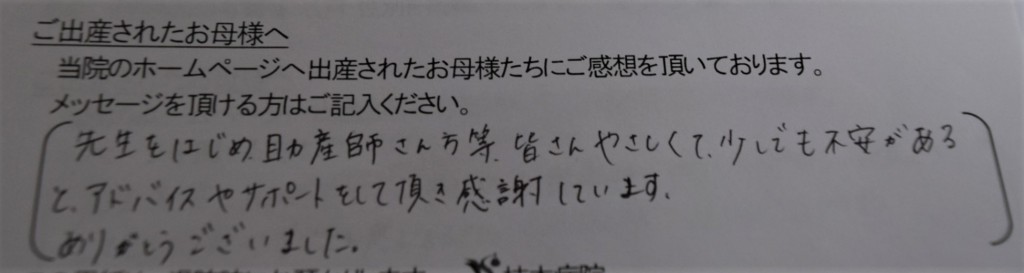 ご出産されたお母様へ
当院のホームページへ出産されたお母様たちにご感想を頂いております。
メッセージを頂ける方はご記入ください。
先生をはじめ、助産師さん方等、皆さんやさしくて、少しでも不安がある
と、アドバイスやサポートをして頂き感謝しています。
ありがとうございました。